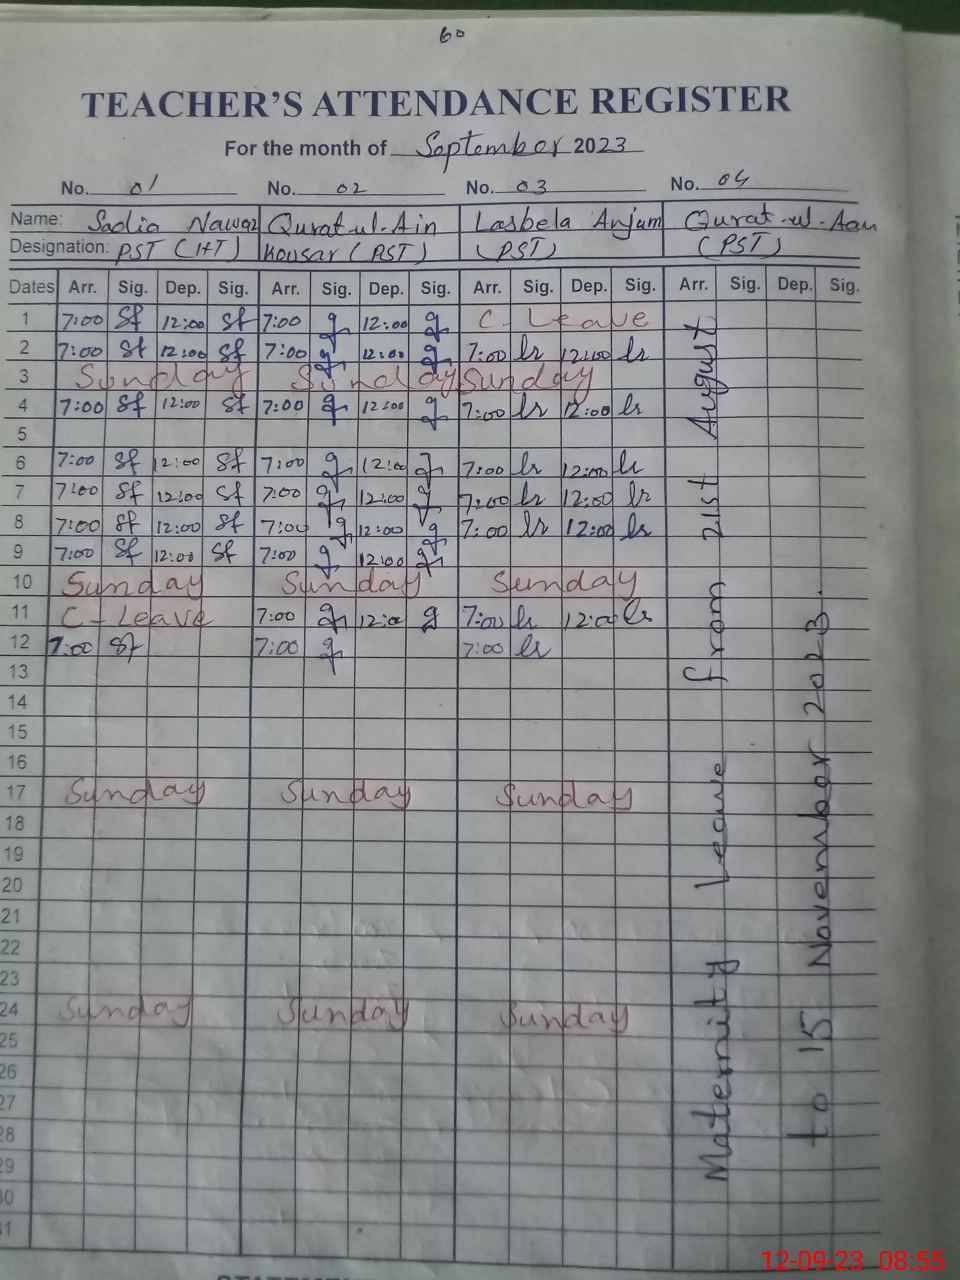 60
TEACHER'S ATTENDANCE REGISTER
For the month of September 2023
No. 01 No. 02 No. 03 No. 04
Name: Sadia Nawaz Qurat-ul-Ain Lasbela Anjum Qurat-ul-Aan
Designation: PST (HT) Kousar (PST) (PST) (PST)
Dates Arr. Sig. Dep. Sig. Arr. Sig. Dep. Sig. Arr. Sig. Dep. Sig. Arr. Sig. Dep. Sig.
1 7:00 Sf 12:00 Sf 7:00 q 12:00 q C-Leave
2 7:00 Sf 12:00 Sf 7:00 q 12:00 q 7:00 lr 12:00 lr
3 Sunday Sunday Sunday
4 7:00 Sf 12:00 Sf 7:00 q 12:00 q 7:00 lr 12:00 lr
5
6 7:00 Sf 12:00 Sf 7:00 q 12:00 q 7:00 lr 12:00 lr
7 7:00 Sf 12:00 Sf 7:00 q 12:00 q 7:00 lr 12:00 lr
8 7:00 Sf 12:00 Sf 7:00 q 12:00 q 7:00 lr 12:00 lr
9 7:00 Sf 12:00 Sf 7:00 q 12:00 q
10 Sunday Sunday Sunday
11 C-Leave 7:00 q 12:00 q 7:00 lr 12:00 lr
12 7:00 Sf 7:00 q 7:00 lr
13
14
15
16
17 Sunday Sunday Sunday
18
19
20
21
22
23
24 Sunday Sunday Sunday
25
26
27
28
29
30
31
Maternity Leave from 21st August
to 15 November 2023.
12-09-23 08:55